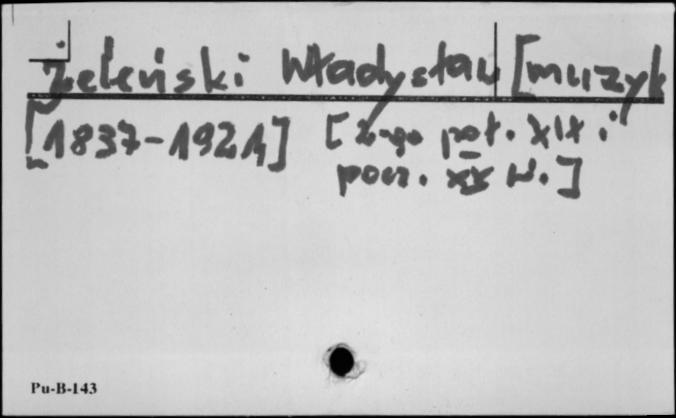 Żeleński Władysław [muzyk
[1837-1921] [2-go poł. XIX i
pocz. XX w.]
Pu-B-143